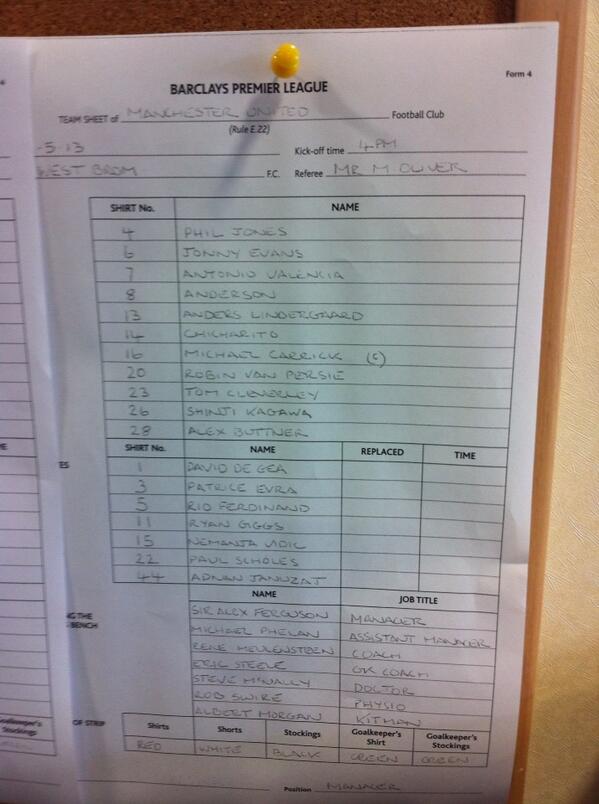 Form 4
BARCLAYS PREMIER LEAGUE
TEAM SHEET of MANCHESTER UNITED Football Club
(Rule E.22)
-5-13 Kick-off time 4PM
WEST BROM F.C. Referee MR M. OLIVER
SHIRT No. NAME
4 PHIL JONES
6 JONNY EVANS
7 ANTONIO VALENCIA
8 ANDERSON
13 ANDERS LINDERGAARD
14 CHICHARITO
16 MICHAEL CARRICK (C)
20 ROBIN VAN PERSIE
23 TOM CLEVERLEY
26 SHINJI KAGAWA
28 ALEX BUTTNER
SHIRT No. NAME REPLACED TIME
1 DAVID DE GEA
3 PATRICE EVRA
5 RIO FERDINAND
11 RYAN GIGGS
15 NEMANJA VIDIC
22 PAUL SCHOLES
44 ADNAN JANUZAJ
NAME JOB TITLE
SIR ALEX FERGUSON MANAGER
MICHAEL PHELAN ASSISTANT MANAGER
RENE MEULENSTEEN COACH
ERIC STEELE GK COACH
STEVE McNALLY DOCTOR
ROB SWIRE PHYSIO
ALBERT MORGAN KITMAN
NG THE
BENCH
OF STRIP
Shirts Shorts Stockings Goalkeeper's Shirt Goalkeeper's Stockings
RED WHITE BLACK GREEN GREEN
Position MANAGER
Goalkeeper's
Stockings
GREEN